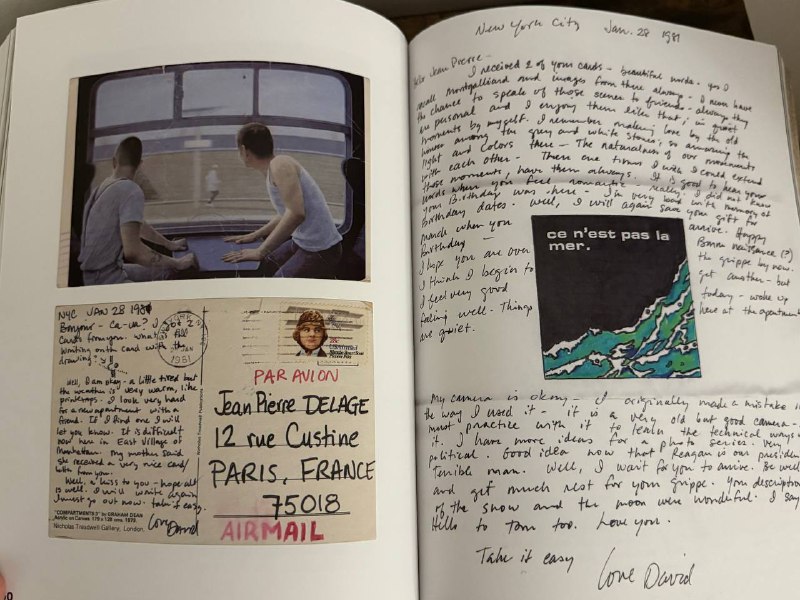 NYC JAN 28 1981
Bonjour - Ca-va? I got 2
Cards from you. What
writing on the card with the
drawing?
Well, I am okay - a little tired but
the weather is very warm, like
printemps. I look very hard
for a new apartment with a
friend. If I find one I will
let you know. It is difficult
now here in East Village of
Manhattan. My mother said
she received a very nice card/
letter from you.
Well, a kiss to you - hope all
is well. I will write again
I must go out now. take it easy.
Love David
"COMPARTMENTS 3" by GRAHAM DEAN
Acrylic on Canvas 179 x 128 cms. 1979.
Nicholas Treadwell Gallery, London.
1981
PAR AVION
Jean Pierre DELAGE
12 rue Custine
PARIS, FRANCE
75018
AIRMAIL
New York City Jan. 28 1981
Hello Jean Pierre -
I received 2 of your cards - beautiful words. Yes I
recall and images from there always - I never have
the chance to speak of those scenes to friends - always they
are personal and I enjoy them in quiet
moments by myself. I remember making love by the old
house among the grey and white stones, so amazing the
light and colors there - The naturalness of our movements
with each other - There are times I wish I could extend
those moments, have them always. It is good to hear your
words when you feel romantic - really. I did not know
your Birthday was here - I'm very bad with memory of
Birthday dates. Well, I will again save your gift for
march when you arrive. Happy
Birthday - Bonne naissance (?)
I hope you are over the grippe by now.
I think I begin to get another - but
I feel very good today - woke up
feeling well. Things here at the apartment
are quiet.
ce n'est pas la
mer.
My camera is okay - I originally made a mistake in
the way I used it - it is a very old but good camera - I
must practice with it to learn the technical ways of
it. I have more ideas for a photo series. Very
political. Good idea now that Reagan is our president
Terrible man. Well, I wait for you to arrive. Be well
and get much rest for your grippe. Your description
of the snow and the moon were wonderful. I say
Hello to Tom too. Love you.
Take it easy
Love David